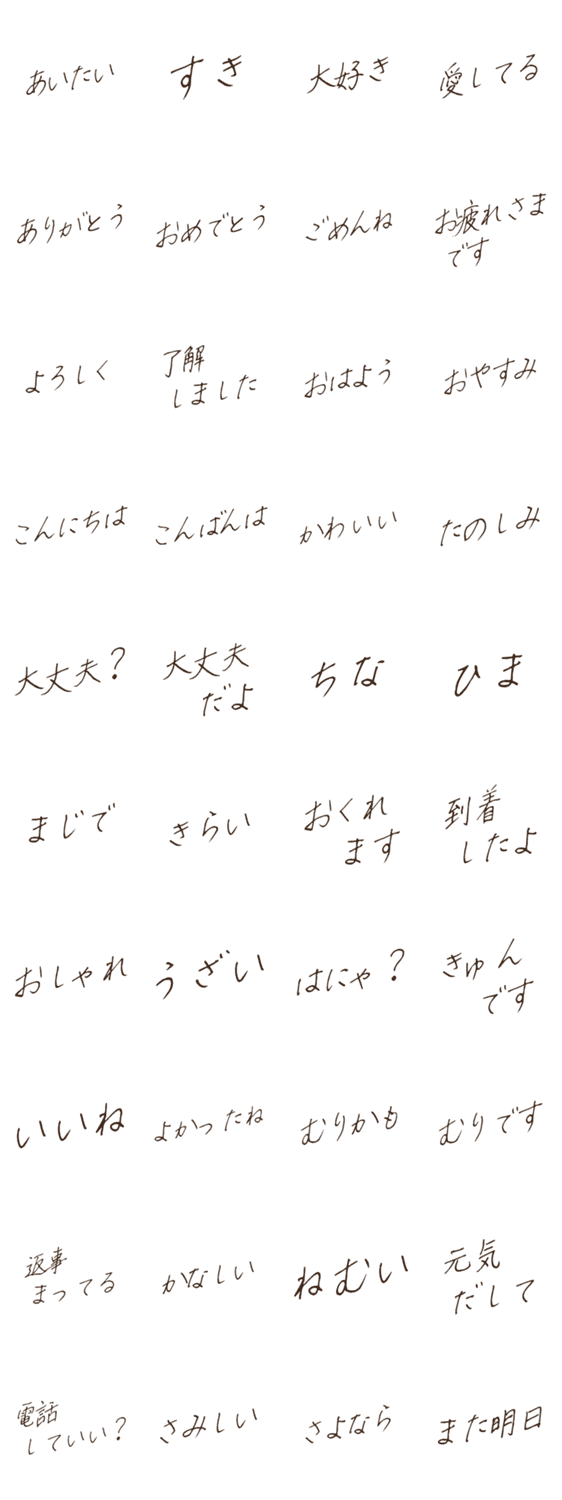 あいたい
すき
大好き
愛してる
ありがとう
おめでとう
ごめんね
お疲れさま
です
よろしく
了解
しました
おはよう
おやすみ
こんにちは
こんばんは
かわいい
たのしみ
大丈夫？
大丈夫
だよ
ちな
ひま
まじで
きらい
おくれ
ます
到着
したよ
おしゃれ
うざい
はにゃ？
きゅん
です
いいね
よかったね
むりかも
むりです
返事
まってる
かなしい
ねむい
元気
だして
電話
していい？
さみしい
さよなら
また明日